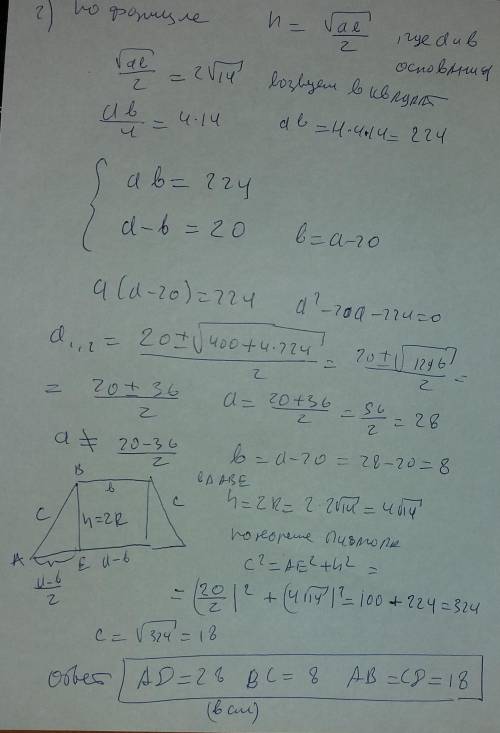 2) по формуле h = √ab/2, где a и b
основания
√ab/2 = 2√14 возведем в квадрат
ab/4 = 4·14 ab = 4·4·14 = 224
{ ab = 224
a-b = 20 b = a-20
a(a-20) = 224 a²-20a-224=0
a₁,₂ = 20±√400+4·224/2 = 20±√1296/2 =
= 20±36/2 a = 20+36/2 = 56/2 = 28
a ≠ 20-36/2 b = a-20 = 28-20 = 8
B b C C h=2R A E a-b a-b/2
ΔABE
h=2R = 2·2√14 = 4√14
по теореме Пифагора
c² = AE²+h² =
= (20/2)² + (4√14)² = 100 + 224 = 324
c = √324 = 18
ответ AD=28 BC=8 AB=CD=18
(в см)